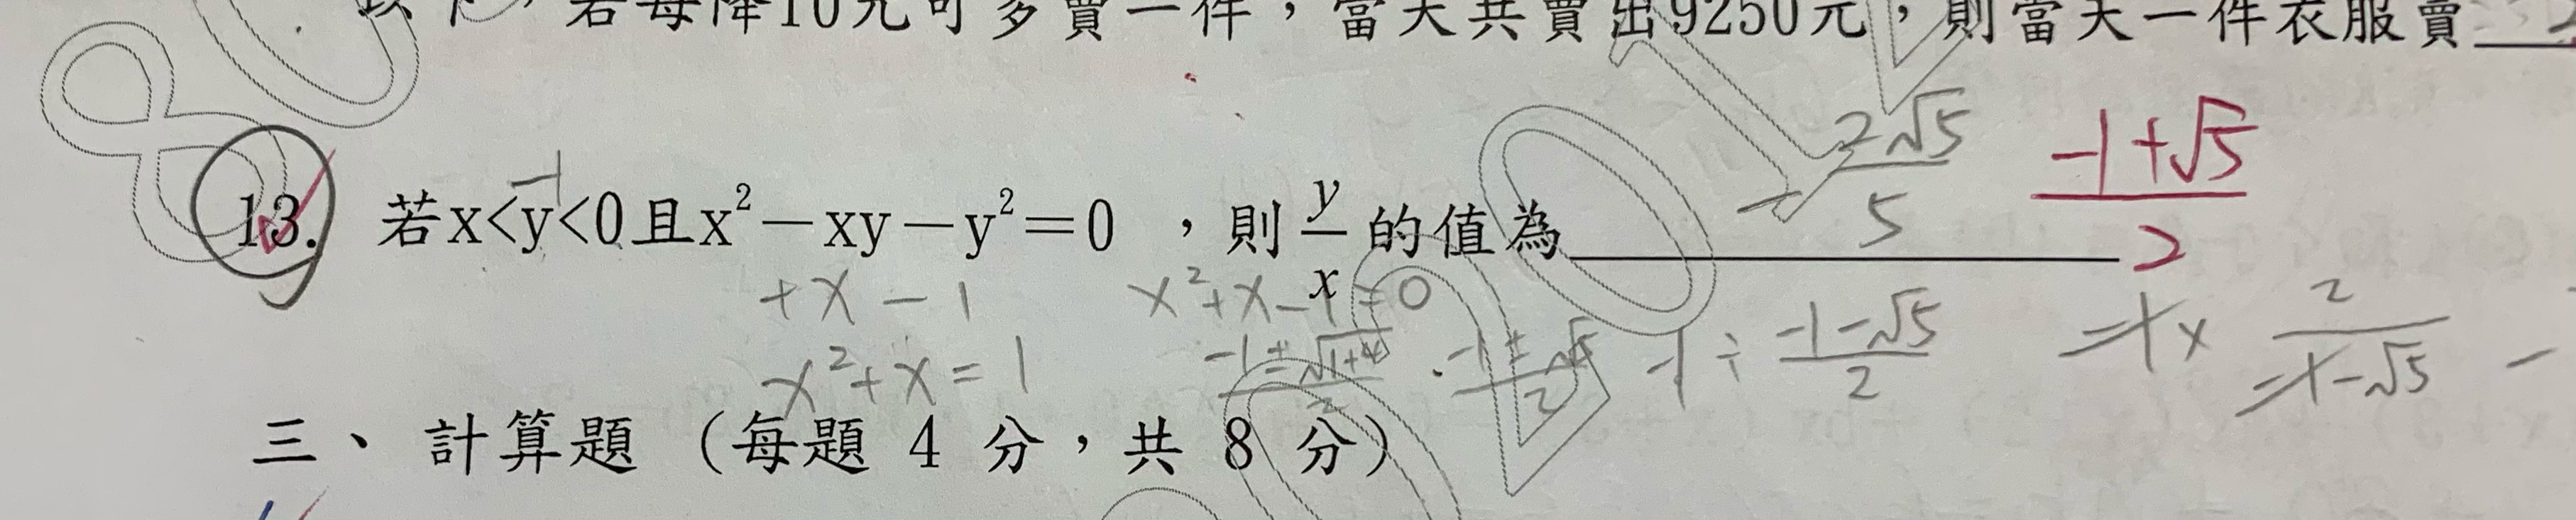 若每降10元可多賣一件，當天共賣出9250元，則當天一件衣服賣
-1
13. 若x<y<0且x²－xy－y²＝0 ，則 y/x 的值為
- 2√5/5
(-1+√5)/2
+x - 1
x²+x-1=0
x²+x=1
(-1±√(1+4))/2 · (-1±√5)/2
-1÷(-1-√5)/2
=1× 2/(-1-√5) -
三、計算題（每題 4 分，共 8 分）